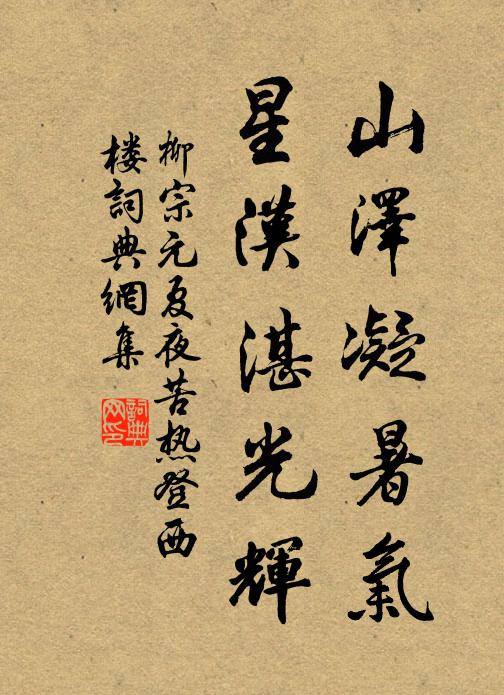 山澤凝暑氣
星漢湛光輝
柳宗元夏夜苦热登西
楼詞典網集
詞典
网印